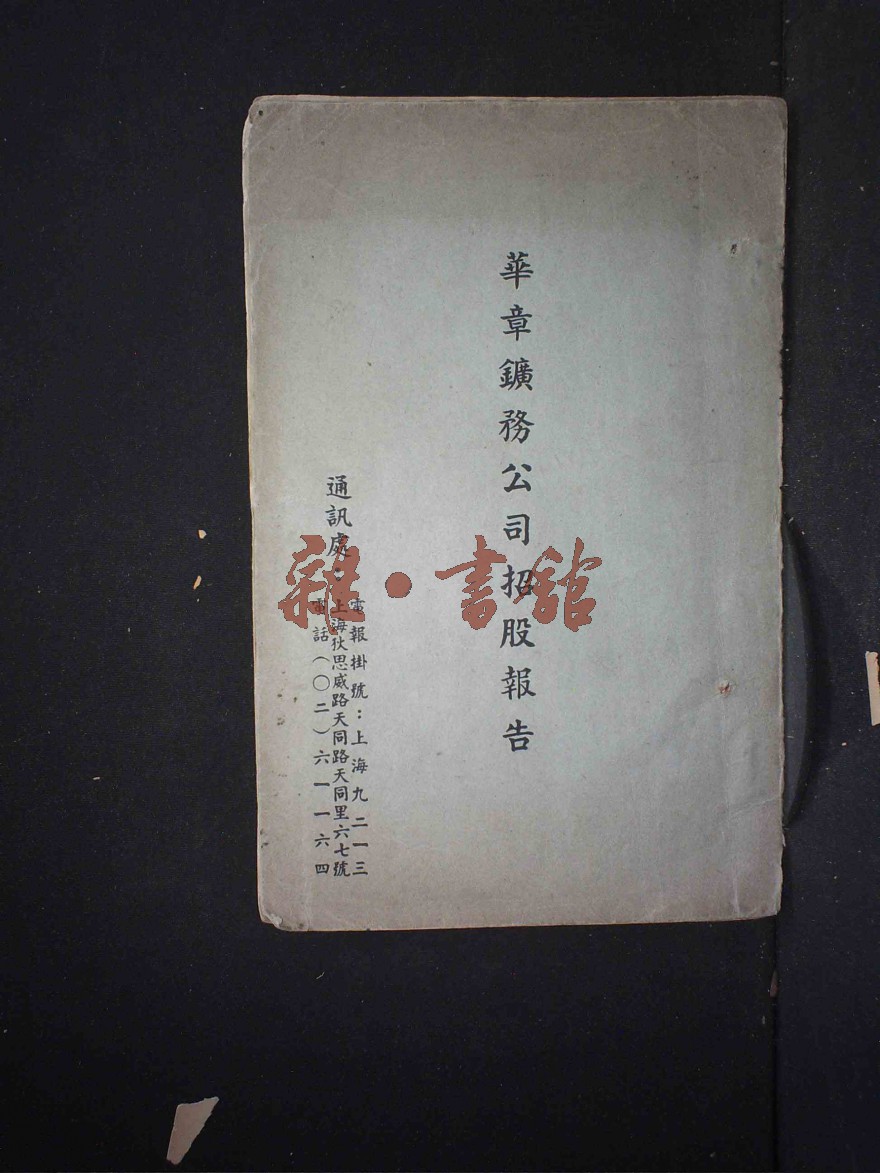 華章鑛務公司招股報告
通訊處：
電報掛號：上海九二一三
上海狄思威路天同路天同里六七號
電話（〇二）六一一六四
雜·書舘